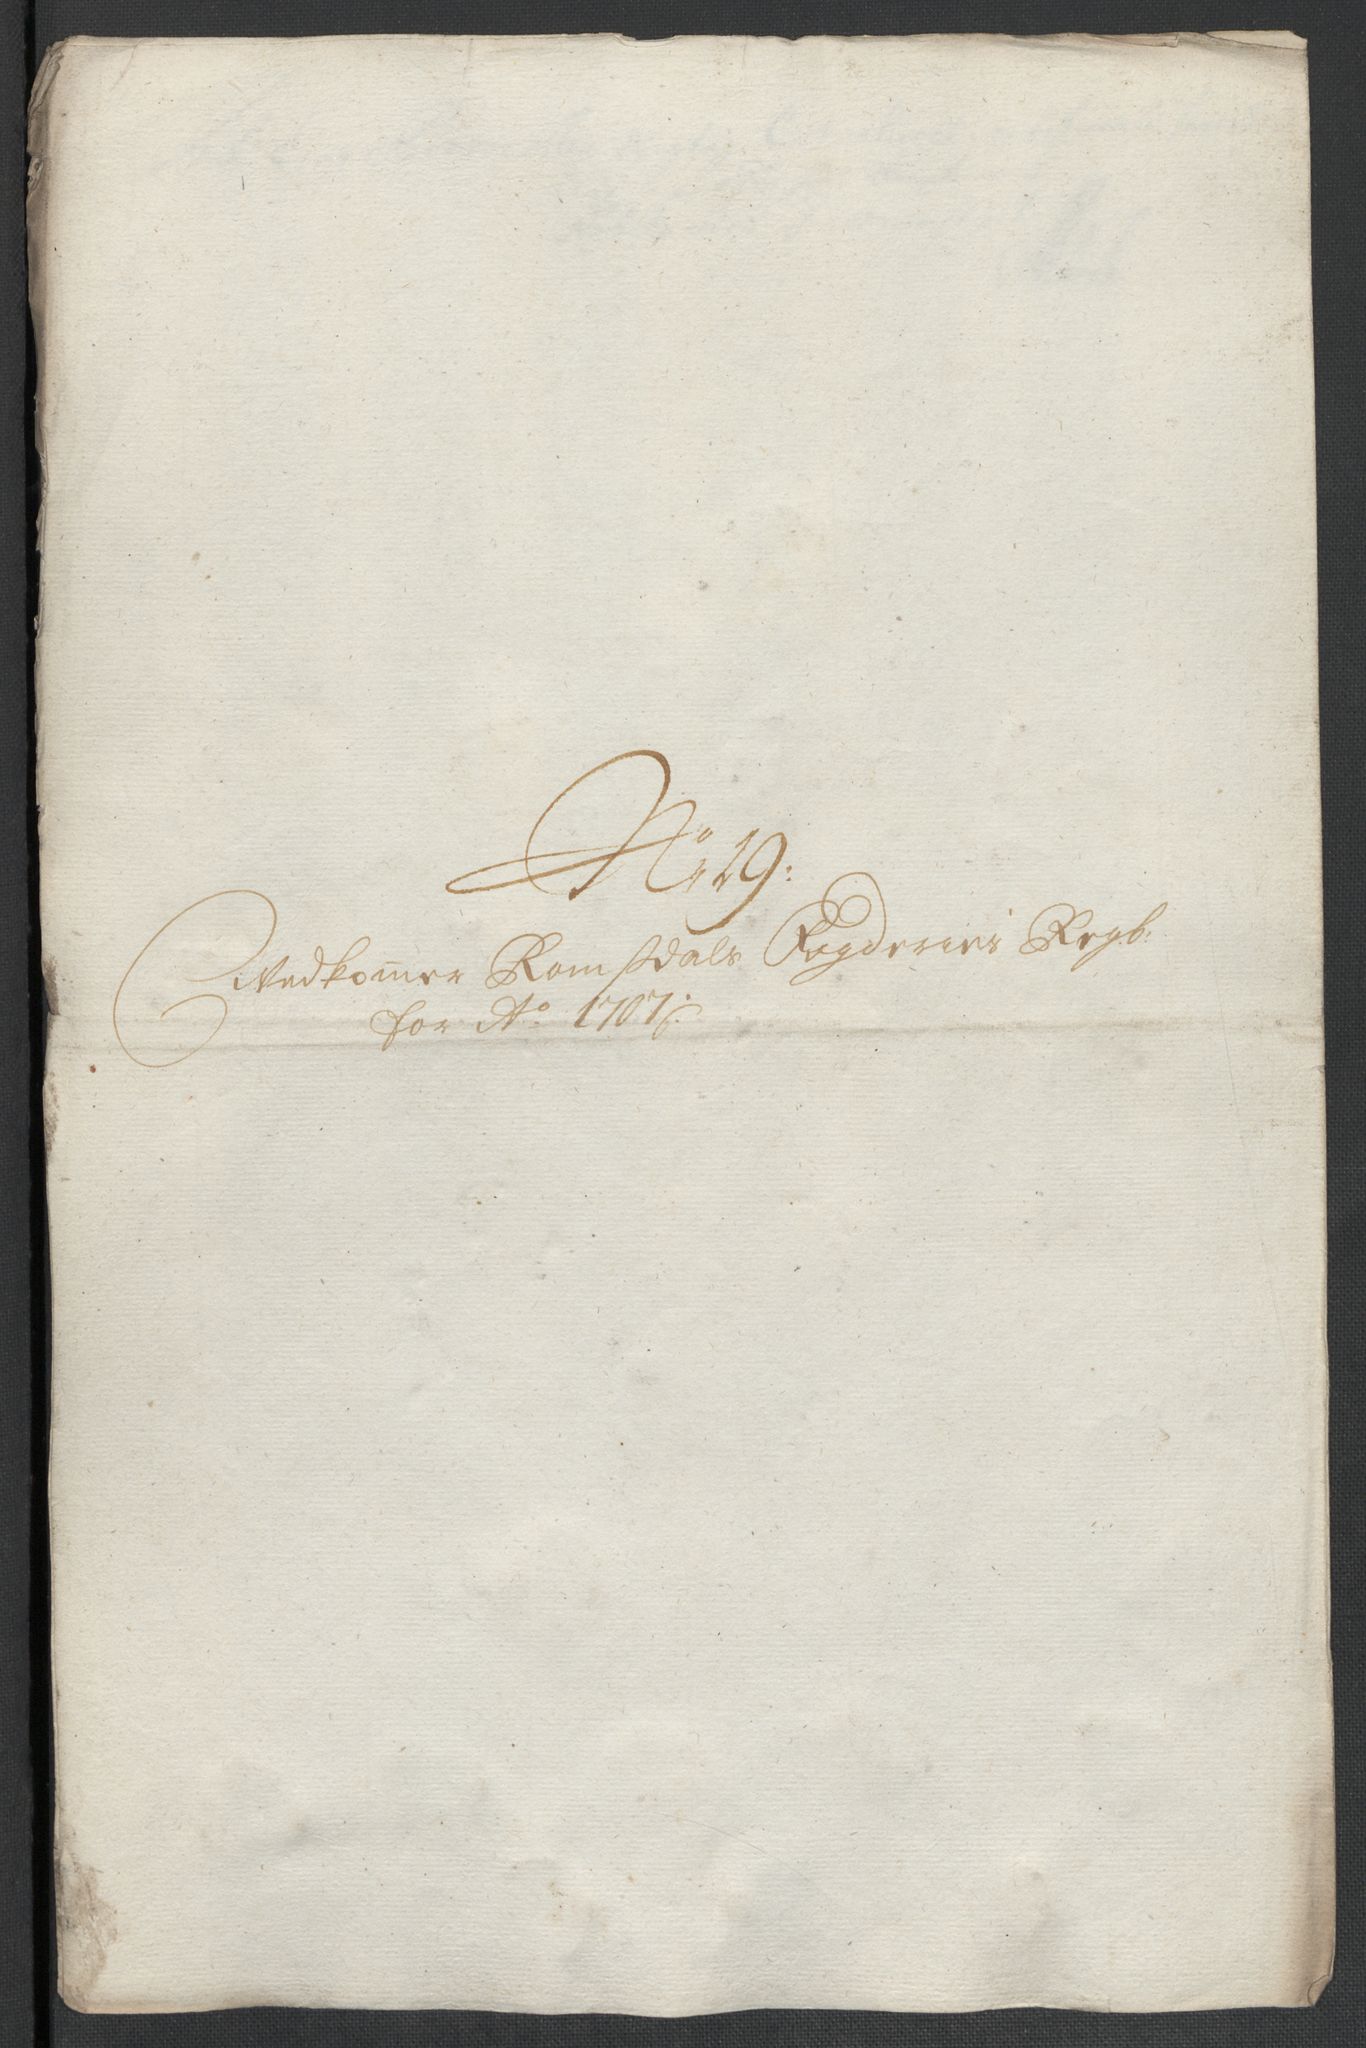 No 19:
Vedkom̄er Romsdals Fogderies Regb:
for Ao 1707: